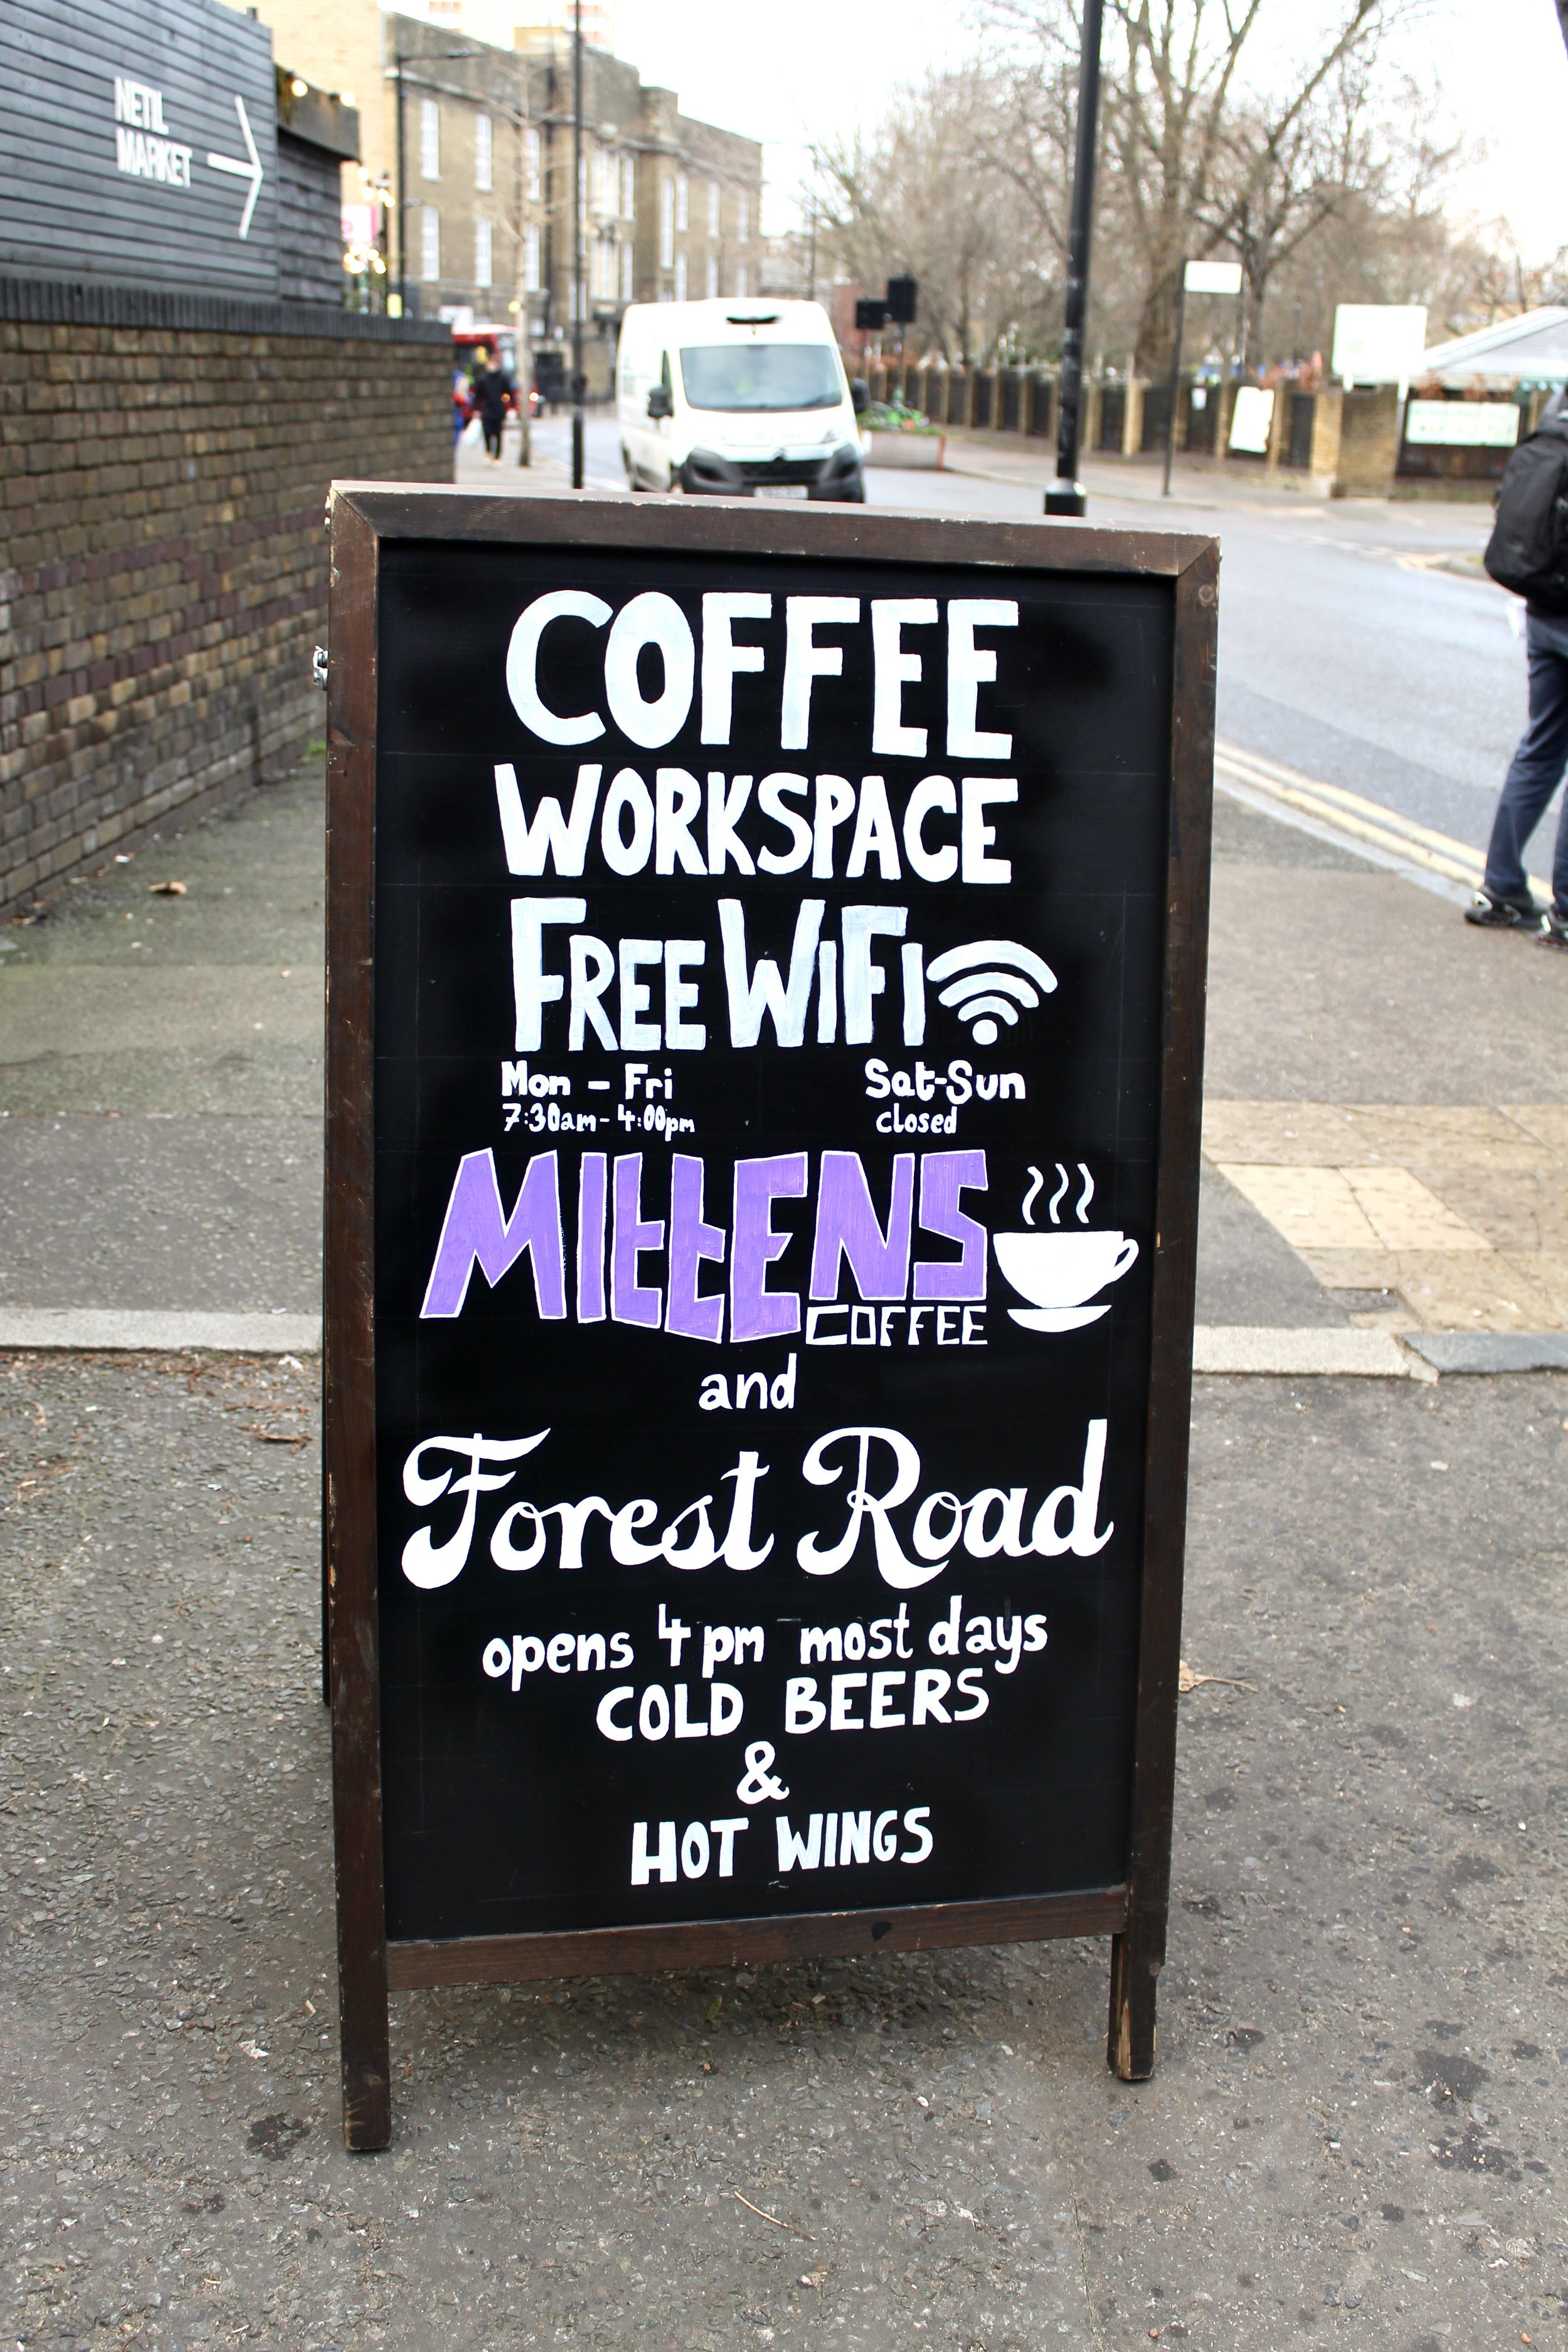 NETIL
MARKET
COFFEE
WORKSPACE
FREE WiFi
Mon - Fri
7:30am - 4:00pm
Sat-Sun
closed
MIttENS
COFFEE
and
Forest Road
opens 4pm most days
COLD BEERS
&
HOT WINGS